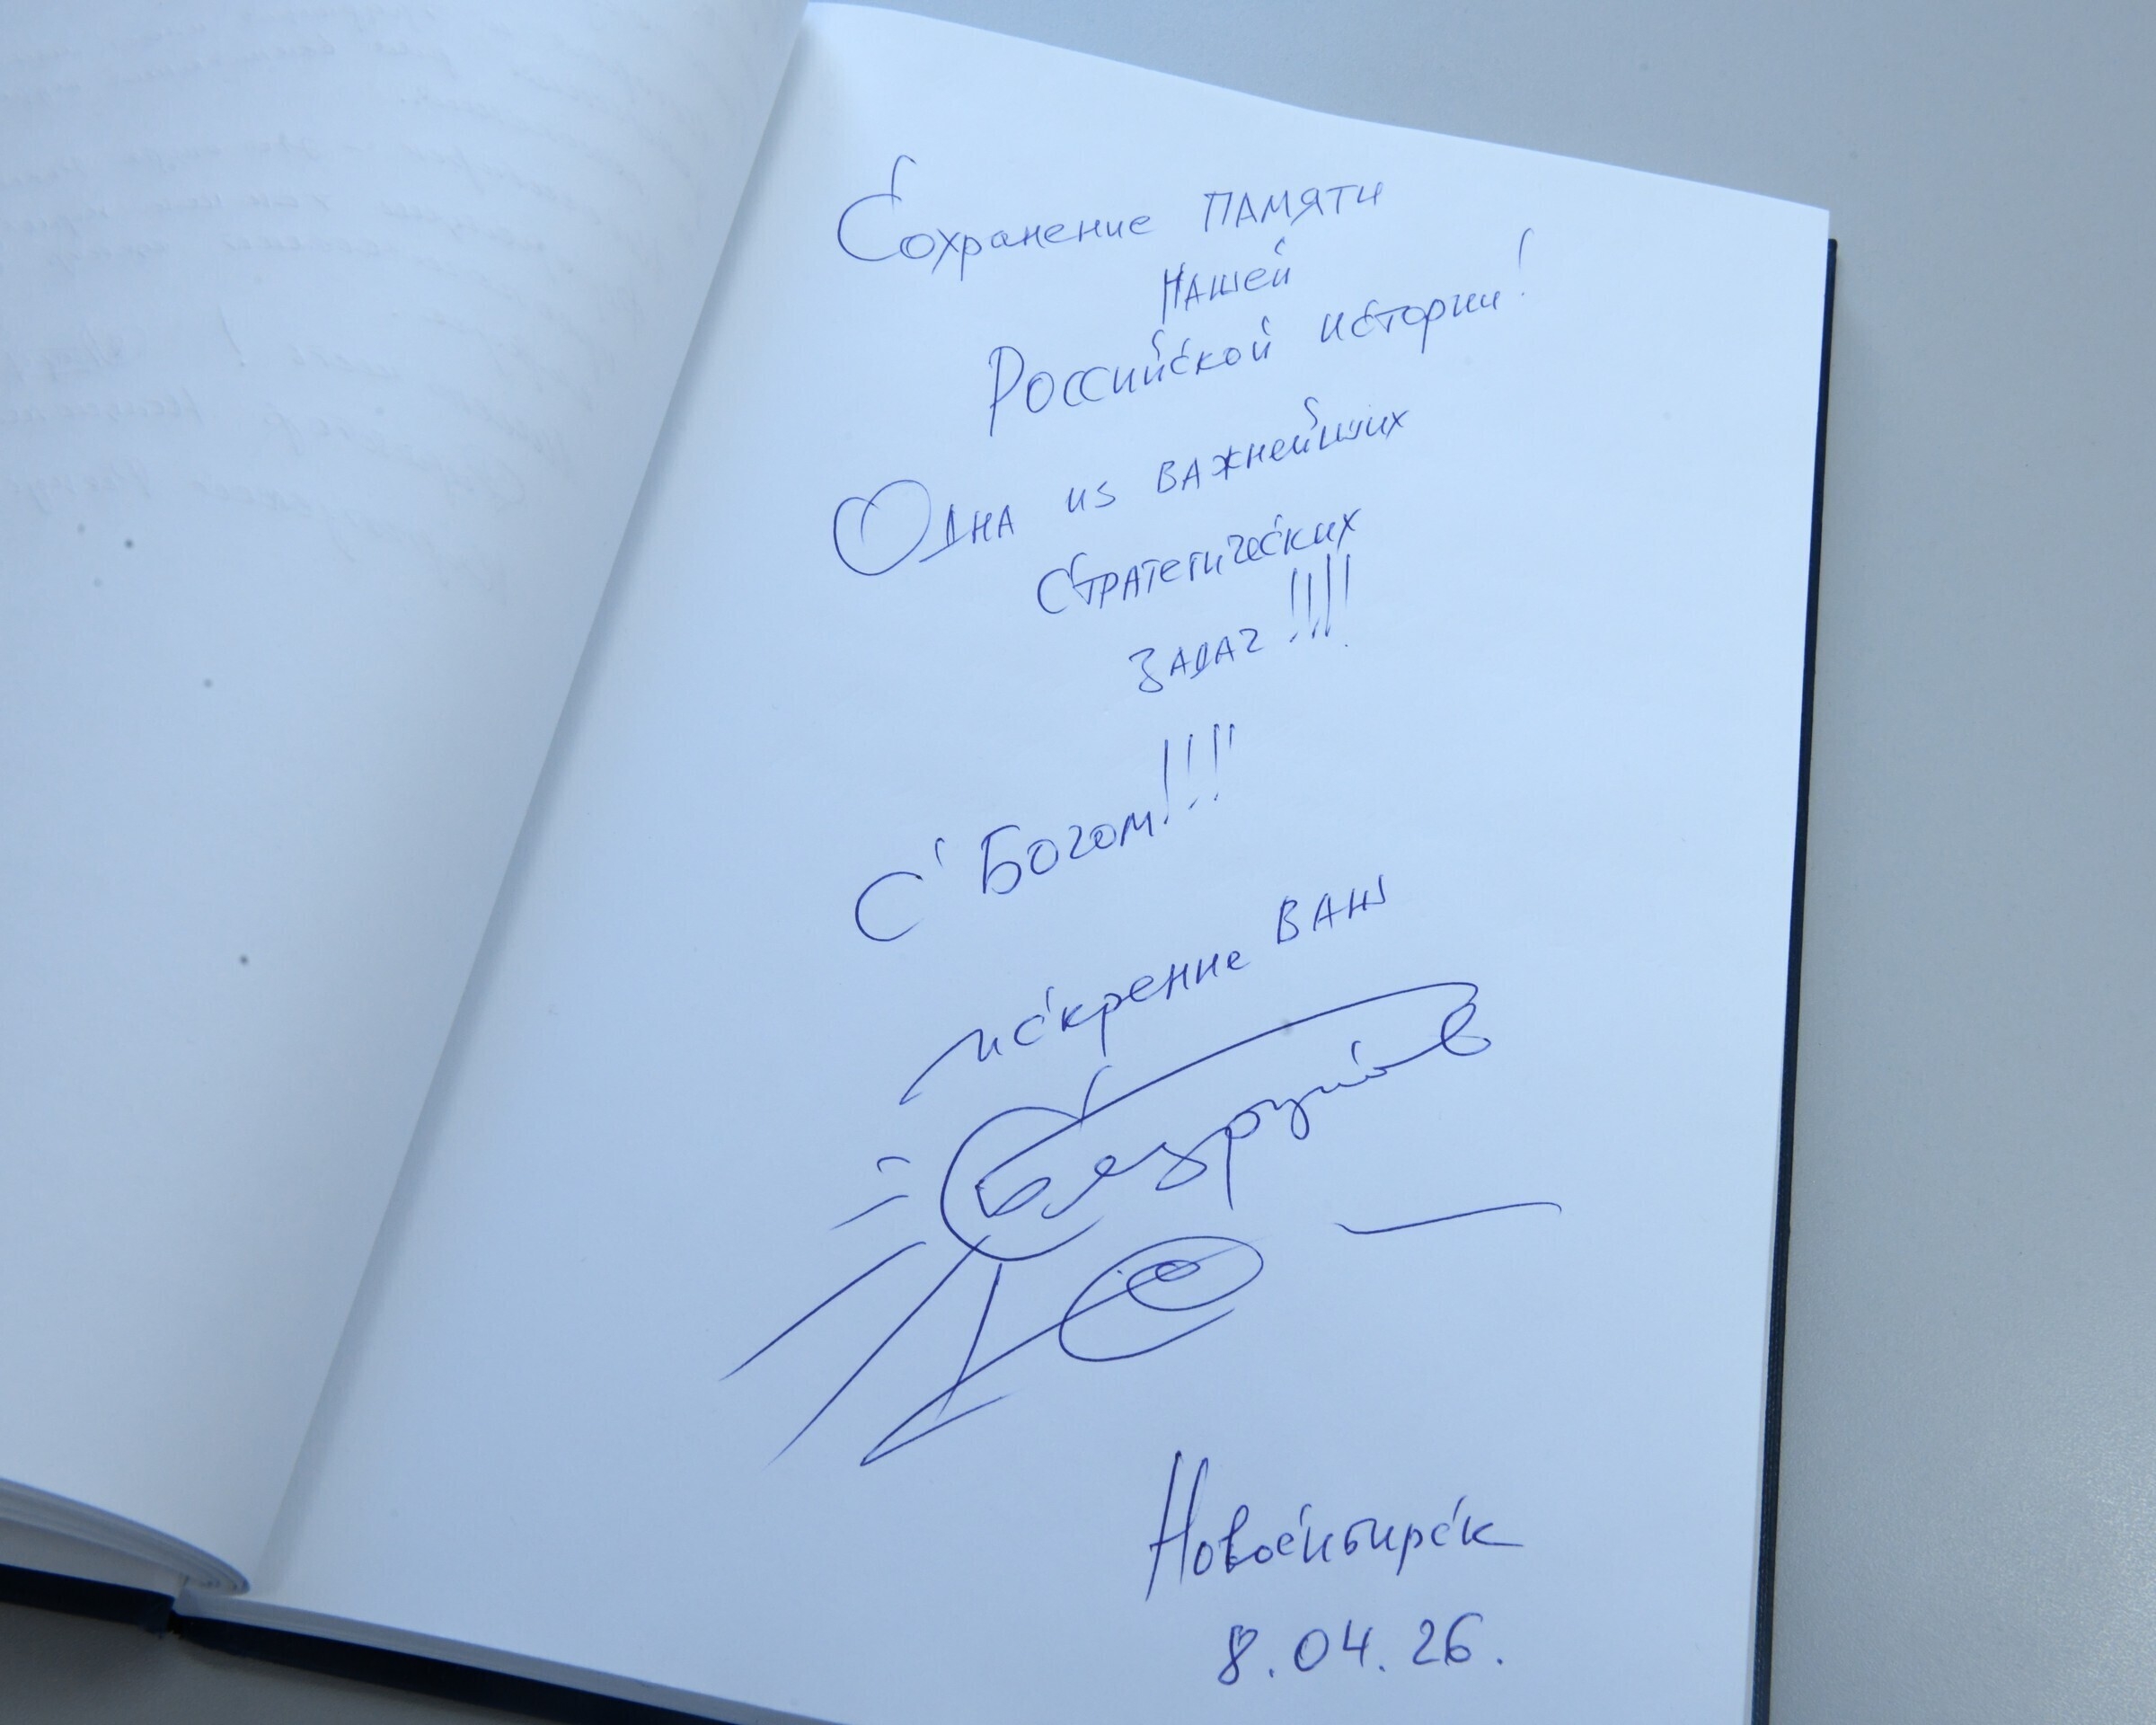 Сохранение ПАМЯТИ
НАшей
Российской истории!
Одна из ВАжнейших
СТРАТегических
ЗАДАч !!!!
С Богом!!!!
искренне ВАш
Безруков
Новосибирск
8.04.26.